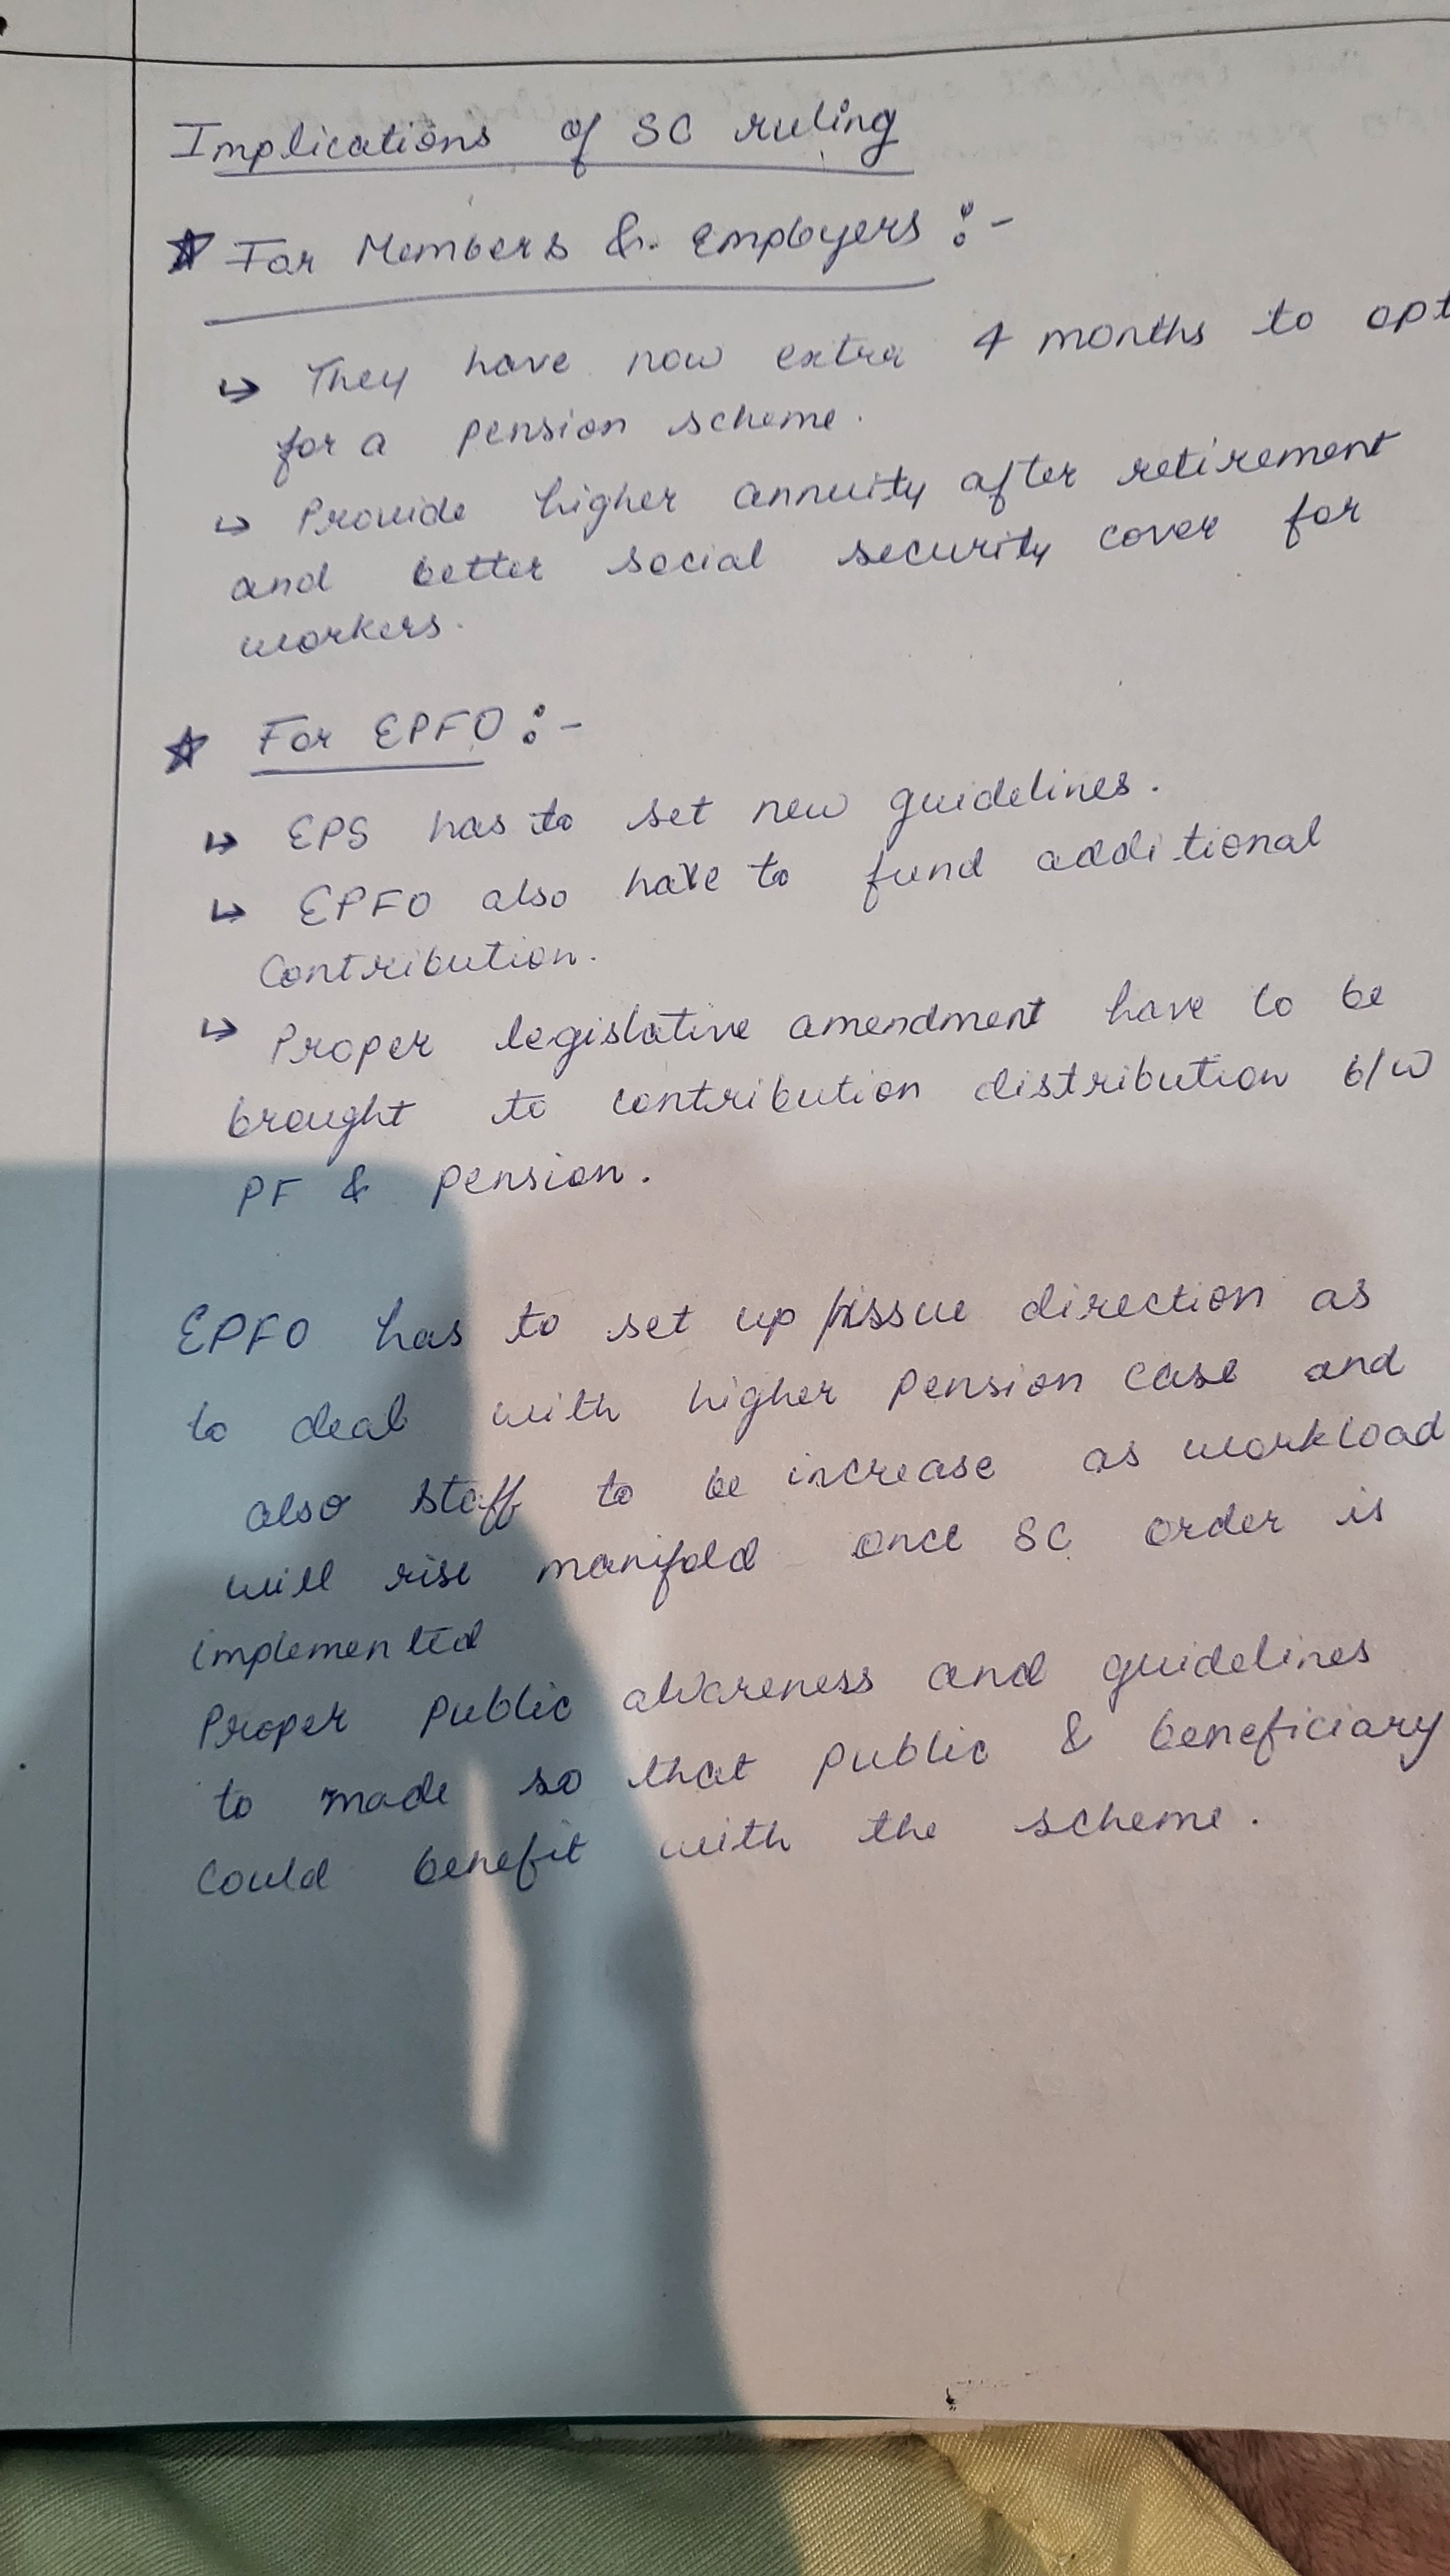 Implications of SC ruling
☆ For Members & Employers :-
↳ They have now extra 4 months to opt
for a pension scheme.
↳ Provide higher annuity after retirement
and better social security cover for
workers.
☆ For EPFO :-
↳ EPS has to set new guidelines.
↳ EPFO also have to fund additional
Contribution.
↳ Proper legislative amendment have to be
brought to contribution distribution b/w
PF & pension.
EPFO has to set up /issue direction as
to deal with higher pension case and
also staff to be increase as workload
will rise manifold once SC order is
implemented
Proper public awareness and guidelines
to made so that public & beneficiary
could benefit with the scheme.